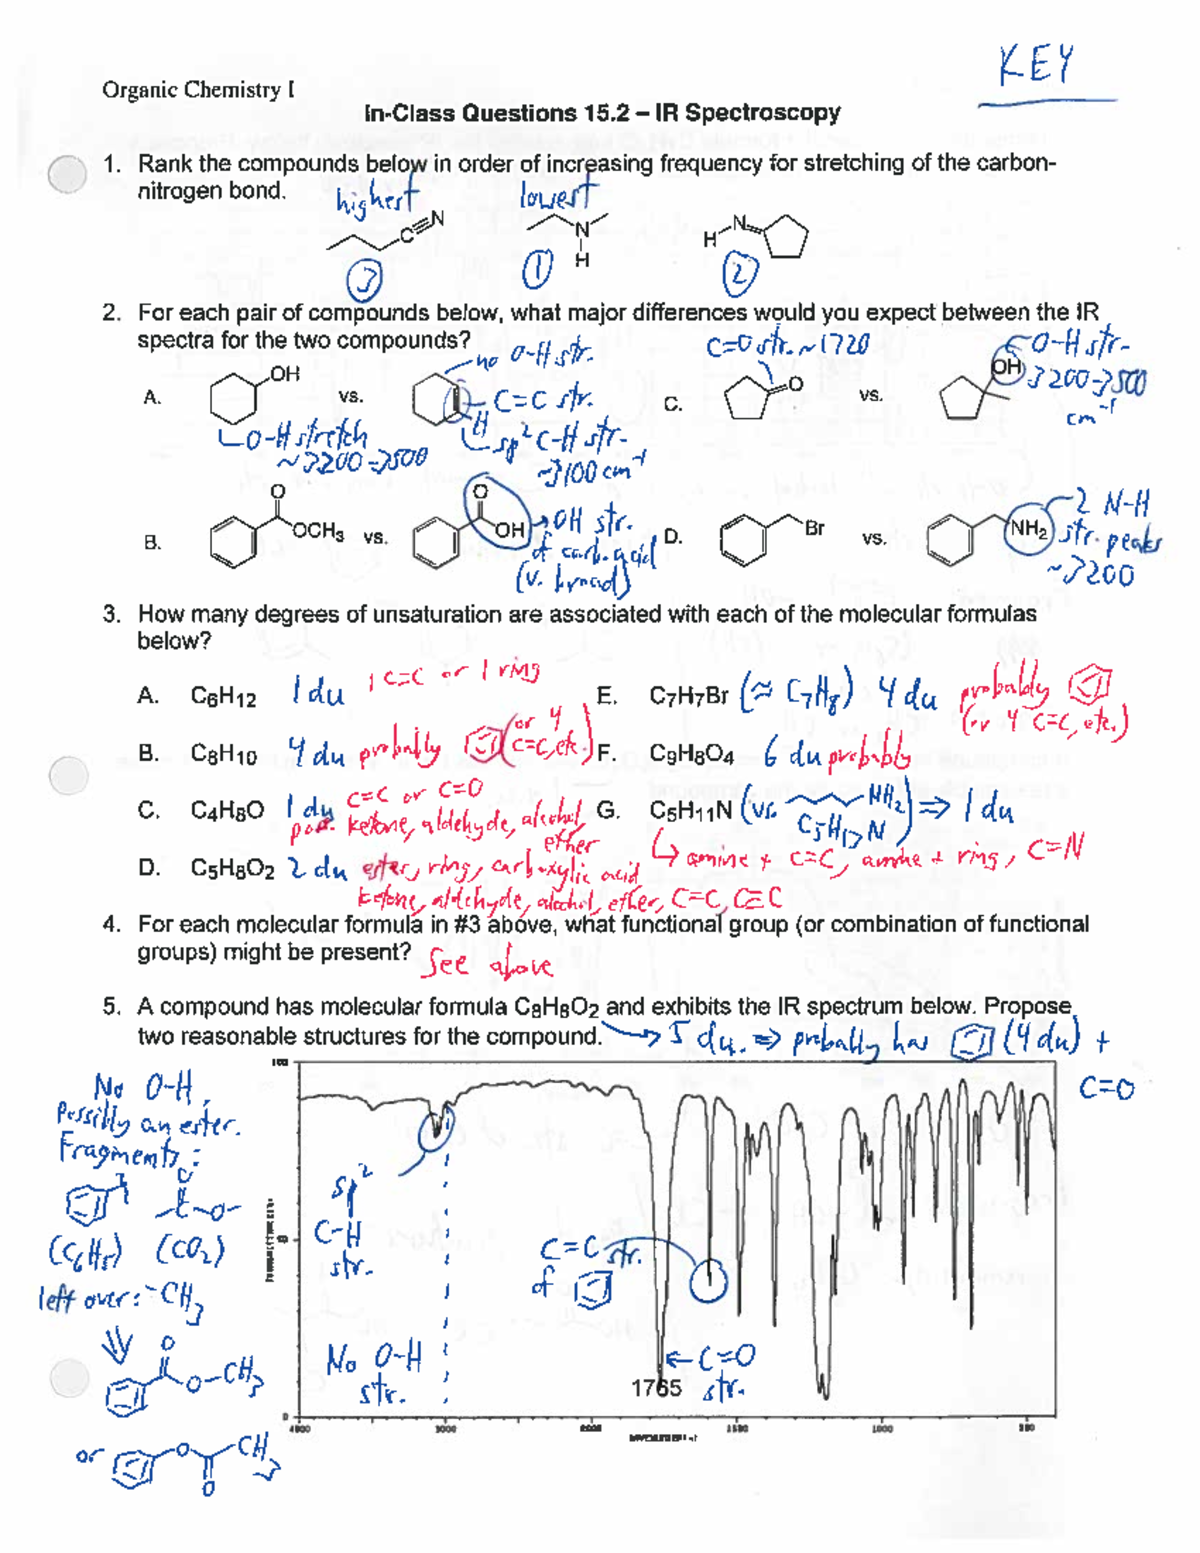 KEY
Organic Chemistry I
In-Class Questions 15.2 – IR Spectroscopy
1. Rank the compounds below in order of increasing frequency for stretching of the carbon-
nitrogen bond.
highest
lowest
C≡N
N
H
H N
3
1
2
2. For each pair of compounds below, what major differences would you expect between the IR
spectra for the two compounds?
no O-H str.
C=O str. ~1720
O-H str.
3200-3500
cm⁻¹
A. OH vs.
C=C str.
H
sp² C-H str.
~3100 cm⁻¹
O-H stretch
~3200-3500
C. O vs. OH
B. O OCH3 vs. O OH
OH str.
of carb. acid
(v. broad)
D. Br vs. NH2
2 N-H
str. peaks
~3200
3. How many degrees of unsaturation are associated with each of the molecular formulas
below?
A. C6H12 1 du 1 C=C or 1 ring
E. C7H7Br (≈ C7H8) 4 du probably
(or 4 C=C, etc.)
B. C8H10 4 du probably (or 4 C=C, etc.)
F. C9H8O4 6 du probably
C. C4H8O 1 du C=C or C=O
poss. ketone, aldehyde, alcohol,
ether
G. C5H11N (vs. NH2 C5H13N) ⇒ 1 du
amine + C=C, amine + ring, C=N
D. C5H8O2 2 du ester, ring, carboxylic acid
ketone, aldehyde, alcohol, ether, C=C, C≡C
4. For each molecular formula in #3 above, what functional group (or combination of functional
groups) might be present? See above
5. A compound has molecular formula C8H8O2 and exhibits the IR spectrum below. Propose
two reasonable structures for the compound. → 5 du. ⇒ probably has (4 du) +
C=O
No O-H,
Possibly an ester.
Fragments:
O
-C-O-
(C6H5) (CO2)
left over: -CH3
O
O-CH3
or
O CH3
O
100
sp²
C-H
str.
No O-H
str.
C=C str.
of
← C=O
str.
1765
0
4000 3000 2000 1500 1000 500